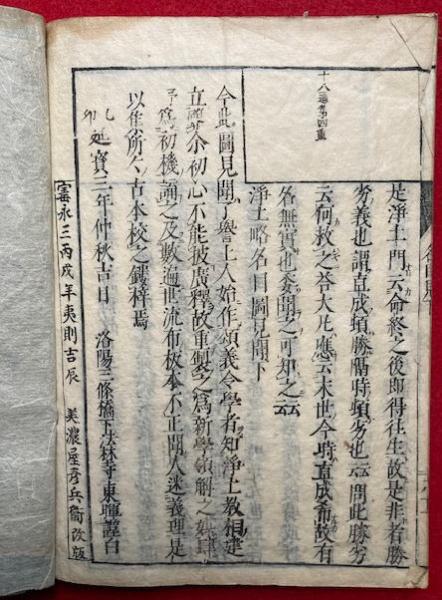 十八通第四重
是淨土門云命終之後即得往生故是非若勝
劣義也謂直成頓勝隔時頓劣也云問此勝劣
云何救之答大凡應云末世今時直成希故有
名無實也委聞之可知之云云
淨土略名目圖見聞下
今此圖見聞了譽上人始作頌義令學者知淨土教相建
立初心不能披廣釋故重製之為新學領解之
予為初機誦之及數遍世流布板本不正間人迷義理是
以集所々古本校之鏤梓焉
乙卯延寶三年仲秋吉日 洛陽三條橋下法林寺東暉謹白
寶永三丙戌年夷則吉辰 美濃屋彥兵衛改版